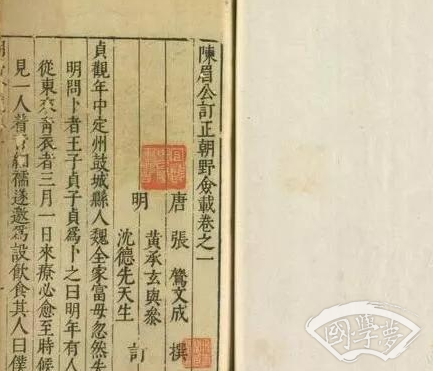 陳眉公訂正朝野僉載卷之一
唐張鷟文成撰
明
黃承玄與參
沈德先天生
訂
貞觀年中定州鼓城縣人魏全家富母忽然失
明問卜者王子貞子貞為卜之曰明年有人
從東來青衣者三月一日來療必愈至時候
見一人着 紬襦遂邀為設飲食其人曰僕
國學夢